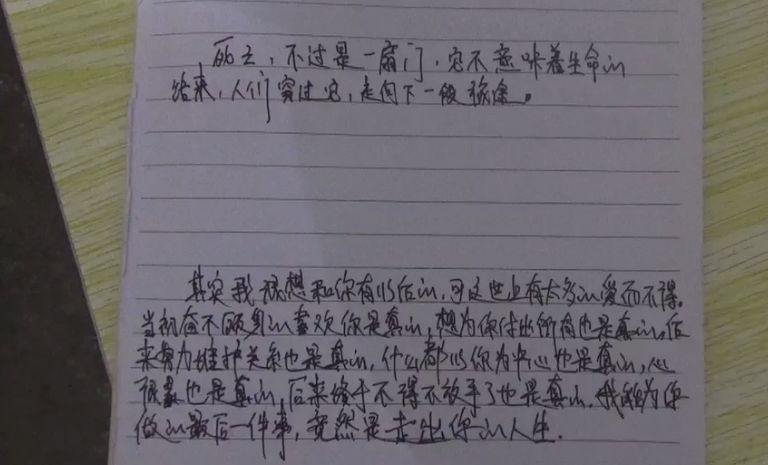 死亡，不过是一扇门，它不意味着生命的
结束，人们穿过它，走向下一段旅途。
其实我很想和你有以后的，可这世上有太多的爱而不得。
当初奋不顾身的喜欢你是真的，想为你付出所有也是真的，后
来努力维护关系也是真的，什么都以你为中心也是真的，心
很累也是真的，后来终于不得不放手了也是真的，我能为你
做的最后一件事，竟然是走出你的人生.